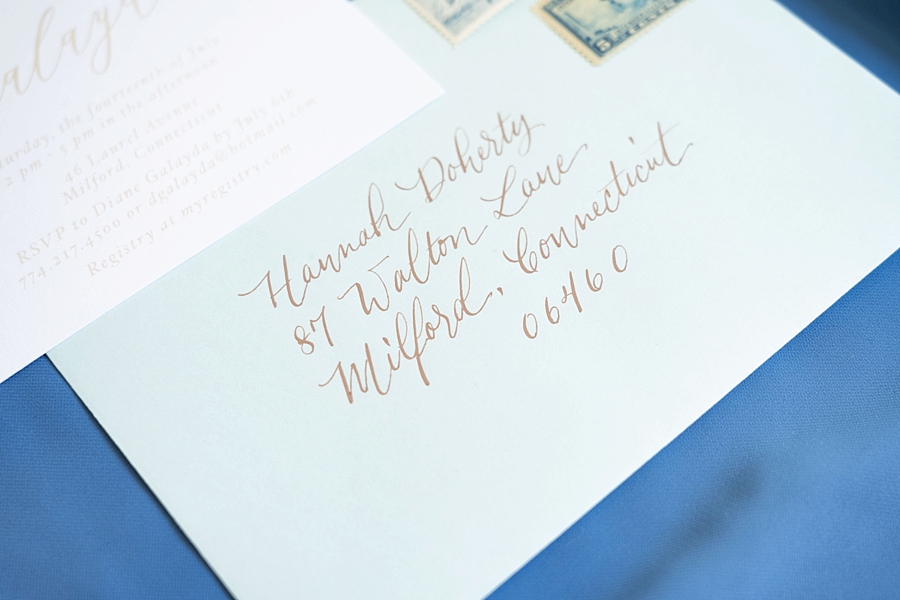 alayda
Saturday, the fourteenth of July
2 pm - 5 pm in the afternoon
46 Laurel Avenue
Milford, Connecticut
RSVP to Diane Galayda by July 6th
774.217.4500 or dgalayda@hotmail.com
Registry at myregistry.com
5 CENTS
Hannah Doherty
87 Walton Lane
Milford, Connecticut
06460